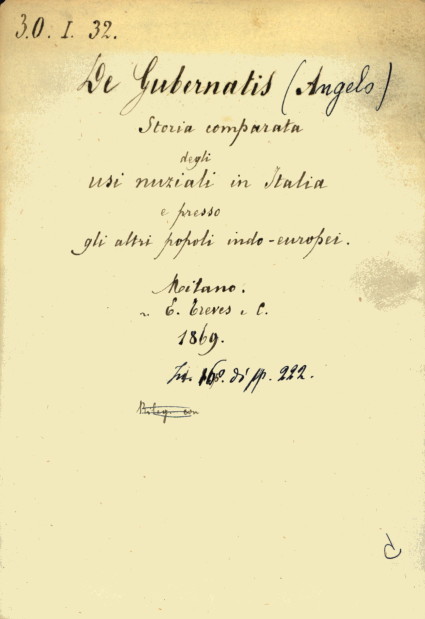 30. I. 32.
De Gubernatis (Angelo)
Storia comparata
degli
usi nuziali in Italia
e presso
gli altri popoli indo-europei.
Milano.
E. Treves e C.
1869.
In 16º. di pp. 222.